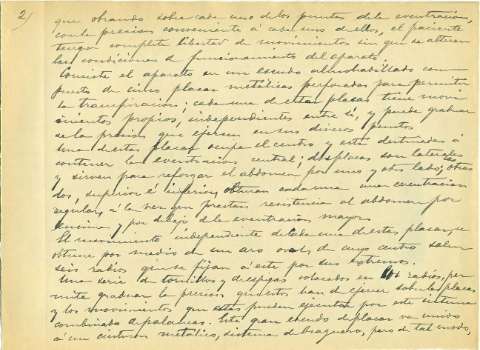 2)
que obrando sobre cada uno de los puntos de la eventración,
con la presión conveniente á cada uno de ellos, el paciente
tenga completa libertad de movimientos sin que se alteren
las condiciones de funcionamiento del aparato.
Consiste el aparato en un escudo almohadillado com-
puesto de cinco placas metálicas perforadas para permitir
la transpiración; cada una de estas placas tiene movi-
mientos propios, independientes entre sí, y puede graduar
se la presión que ejercen en sus diversos puntos
Una de estas placas ocupa el centro y está destinada á
contener la eventración central; dos placas son laterales
y sirven para reforzar el abdomen por uno y otro lado; otras
dos, superior é inferior, obturan cada una una eventración
regular, á la vez que prestan resistencia al abdomen por
encima y por debajo de la eventración mayor.
El movimiento independiente de cada una de estas placas, se
obtiene por medio de un aro oval, de cuyo centro salen
seis radios que se fijan á este por sus extremos.
Una serie de tornillos y de espigas colocados en los radios, per-
mite graduar la presión que estos han de ejercer sobre las placas
y los movimientos que estas pueden ejecutar por este sistema
combinado de palancas. Este gran escudo de placas va unido
á un cinturón metálico, sistema de braguero, pero de tal modo,